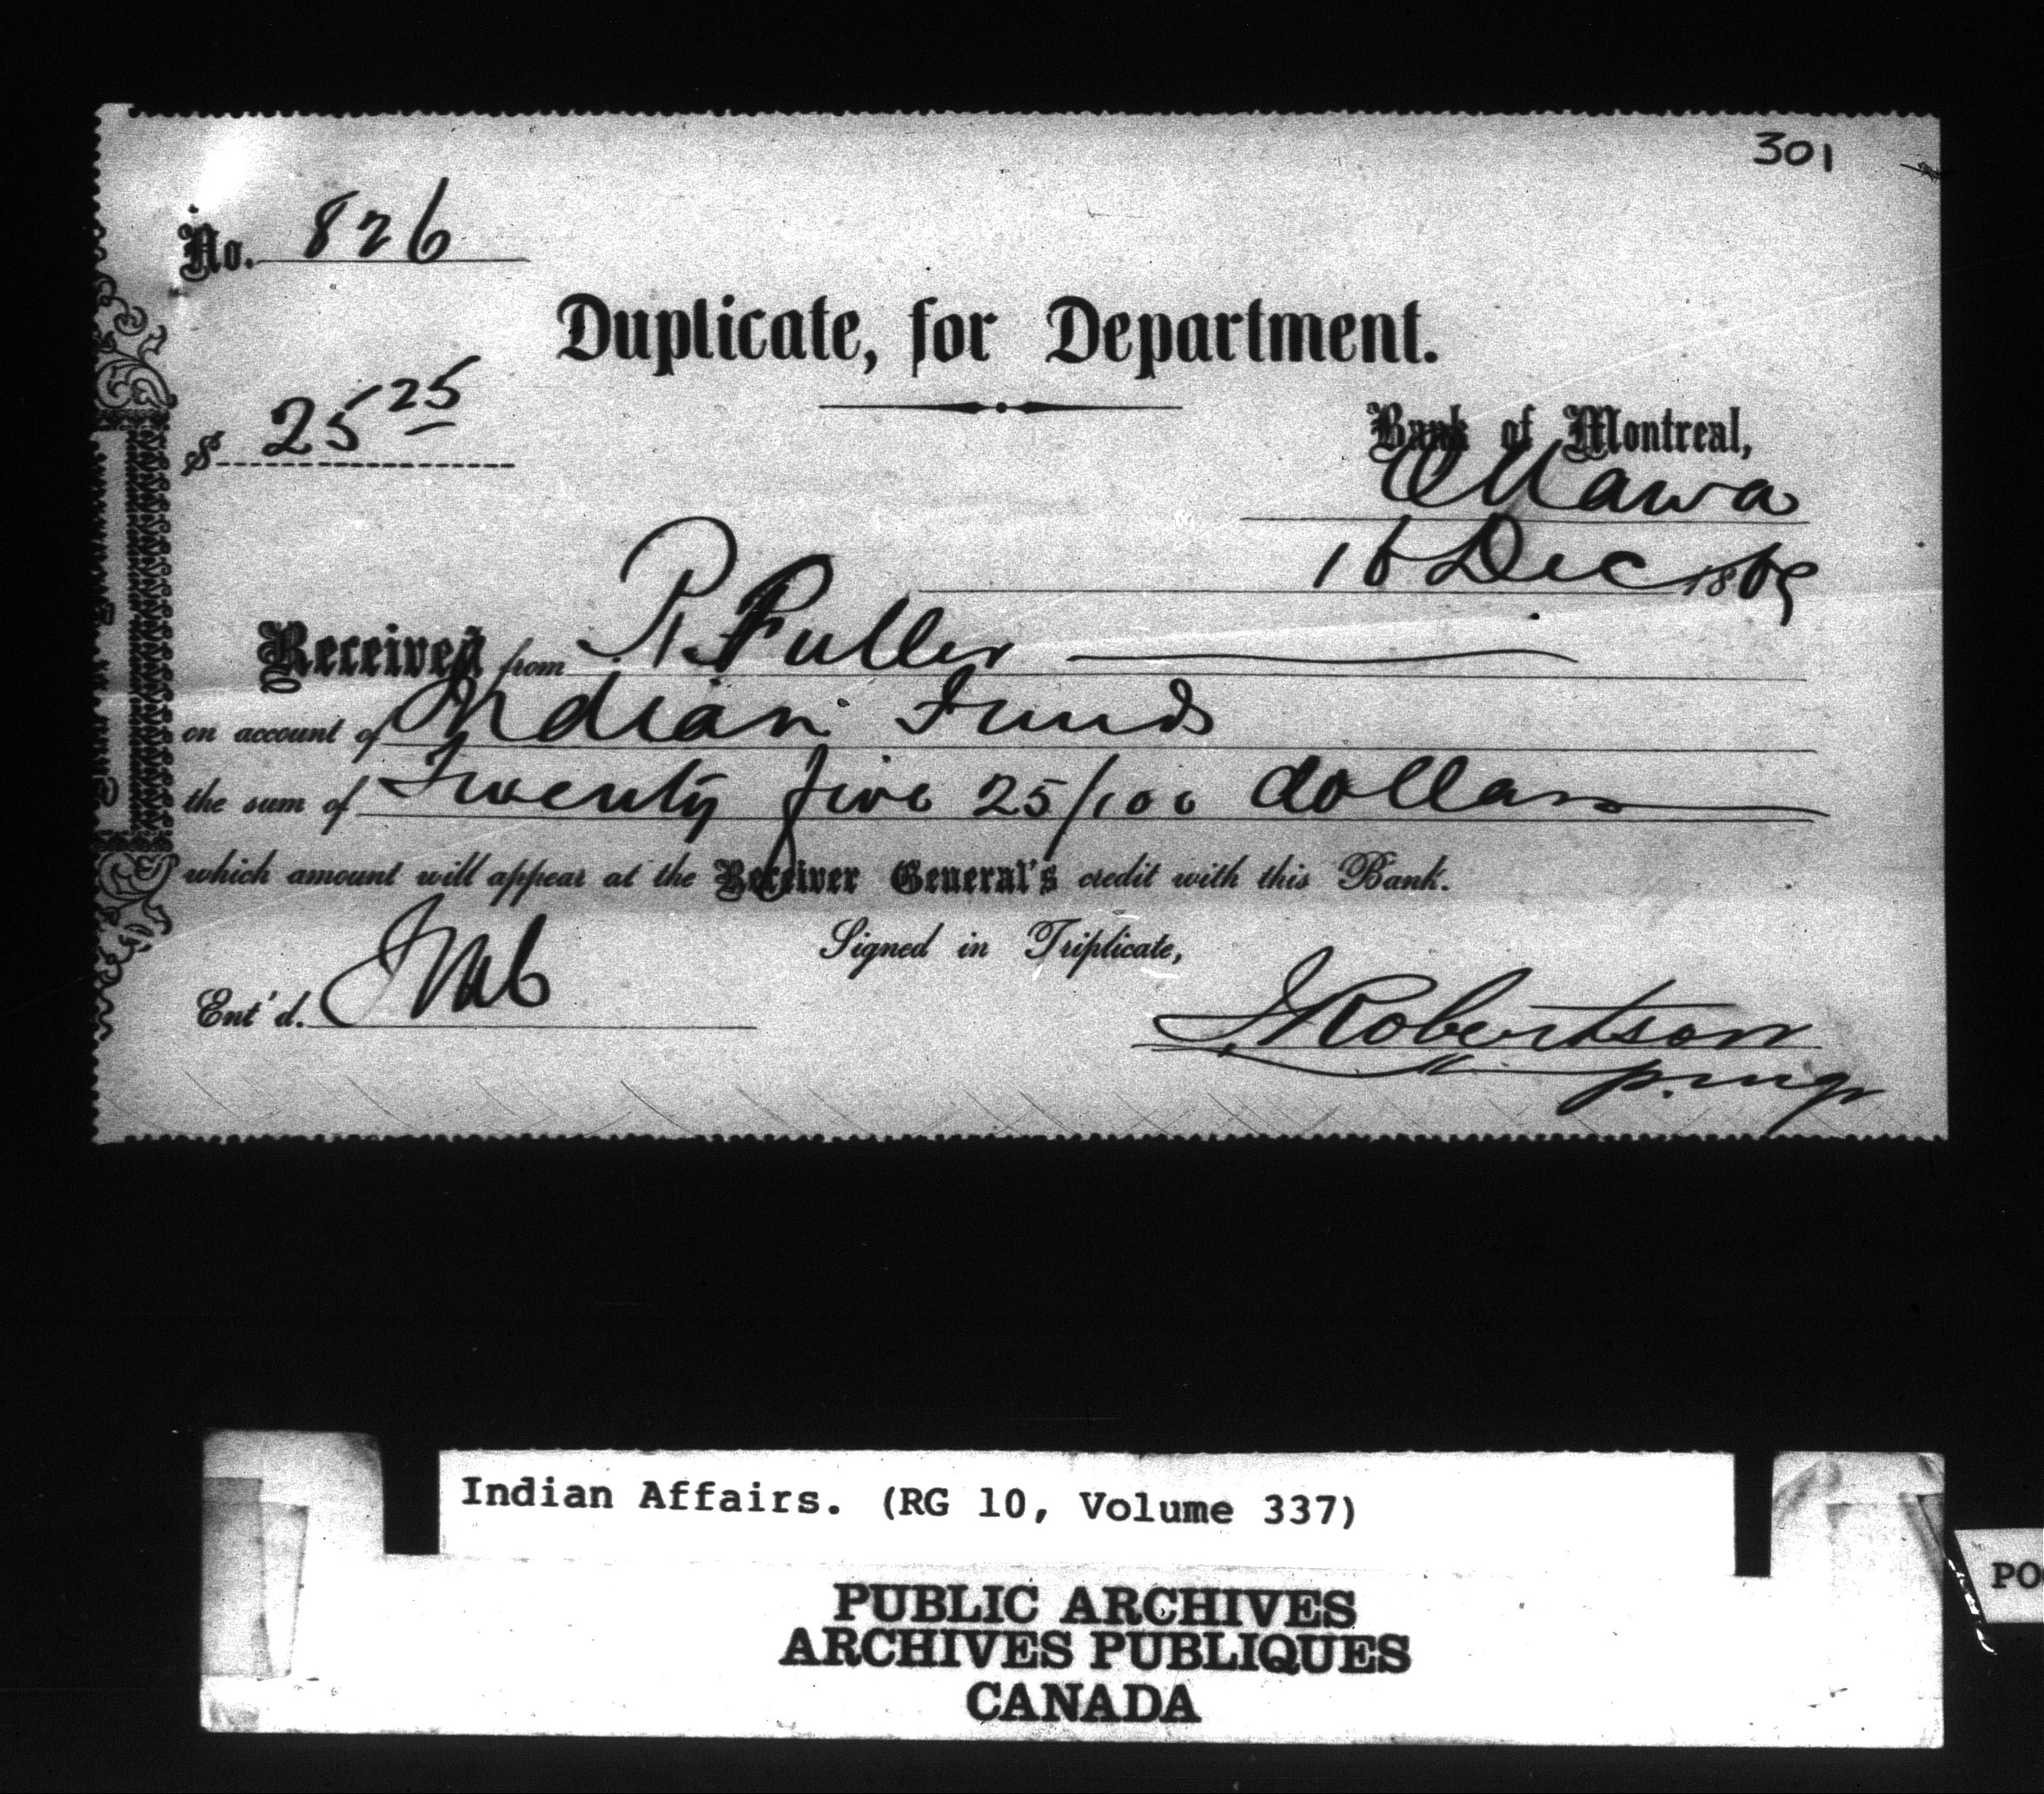 301
No. 826
Duplicate, for Department.
$ 25 25
Bank of Montreal,
Ottawa
16 Dec 1869
Received from R. Fuller
on account of Indian Funds
the sum of Twenty five 25/100 dollars
which amount will appear at the Receiver General's credit with this Bank.
Signed in Triplicate,
Ent'd.
J Robertson
p. mgr
Indian Affairs. (RG 10, Volume 337)
PUBLIC ARCHIVES
ARCHIVES PUBLIQUES
CANADA
PO